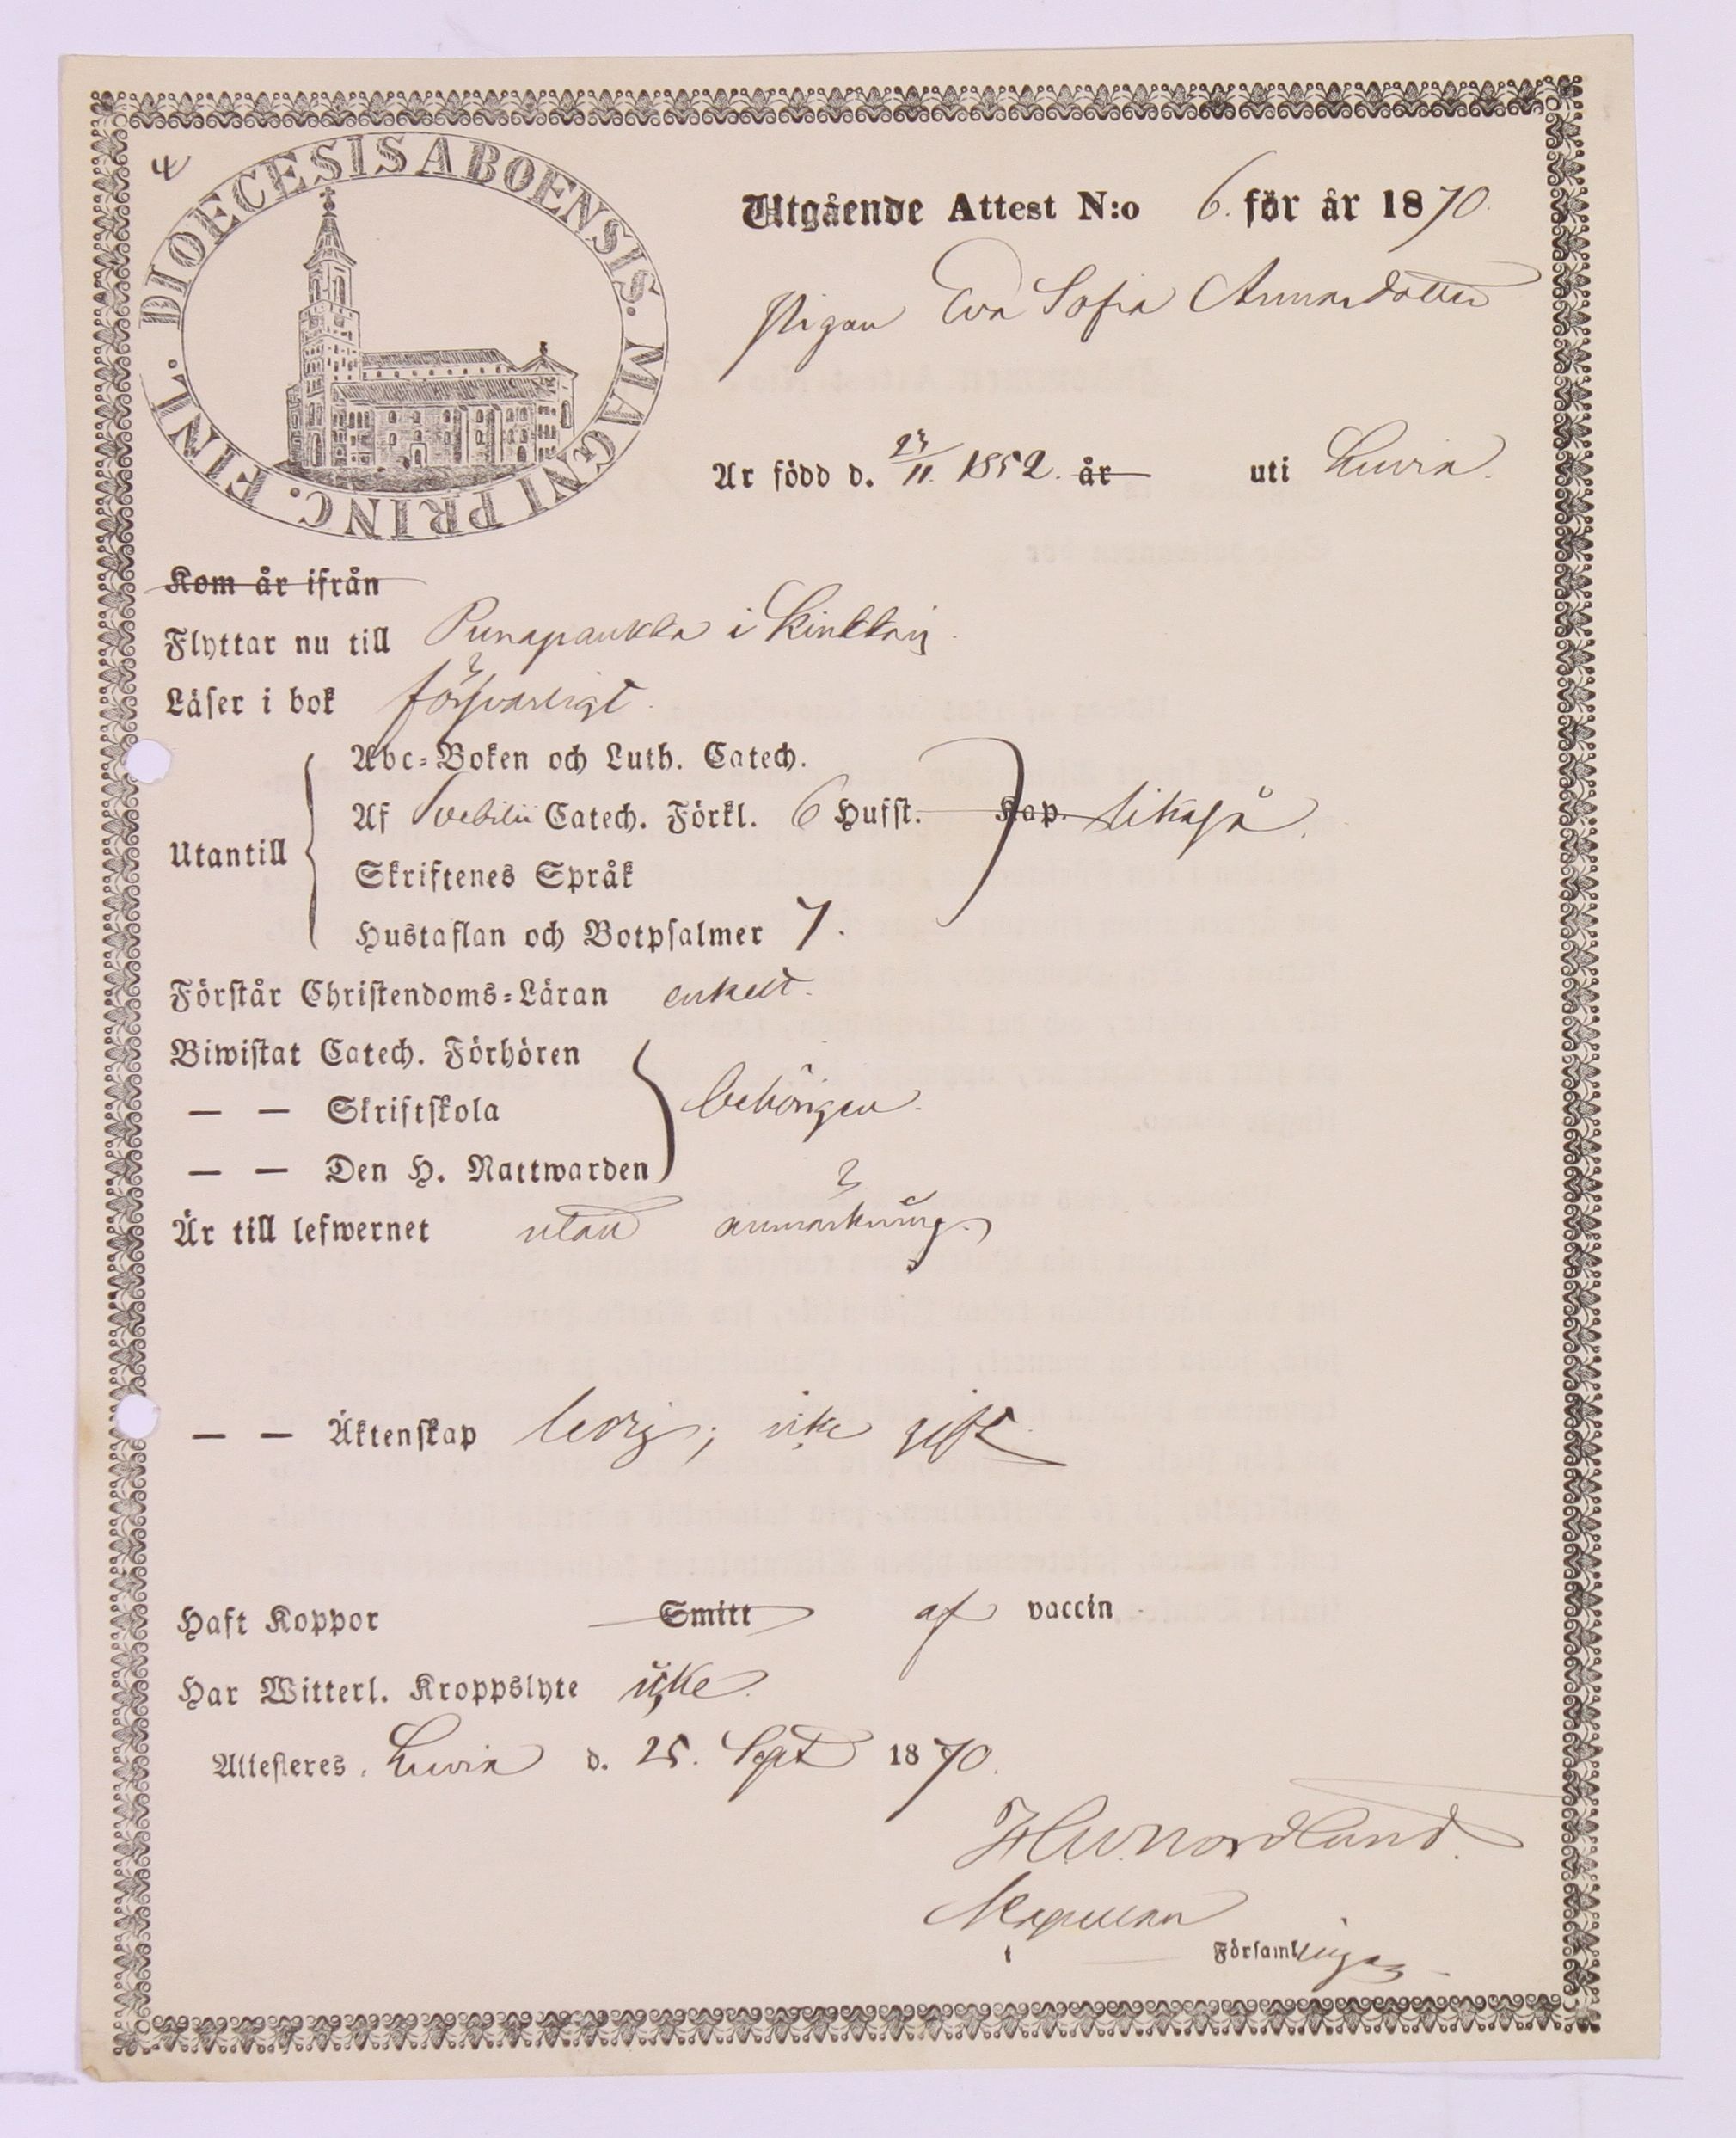 4
DIOECESIS ABOENSIS. MAGNI PRINC. FINL.
Utgående Attest N:o 6. för år 1870.
Pigan Eva Sofia
Är född d. 23/11. 1852. år uti Luvia.
Kom år ifrån
Flyttar nu till Punapaukka i
Läser i bok försvarligt.
Abc-Boken och Luth. Catech.
Af Svebilii Catech. Förkl. 6 Hufst. Kap. likaså.
Utantill
Skriftenes Språk
Hustaflan och Botpsalmer 7.
Förstår Christendoms-Läran enkelt.
Biwistat Catech. Förhören
— — Skriftskola behörigen.
— — Den H. Nattwarden
Är till lefwernet utan anmärkning.
— — Äktenskap ledig; icke gift
Haft Koppor Smitt af vaccin
Har Witterl. Kroppslyte icke.
Attesteres. Luvia d. 25. Sept 1870.
Nordlund.
Kapellan
i Församlingen